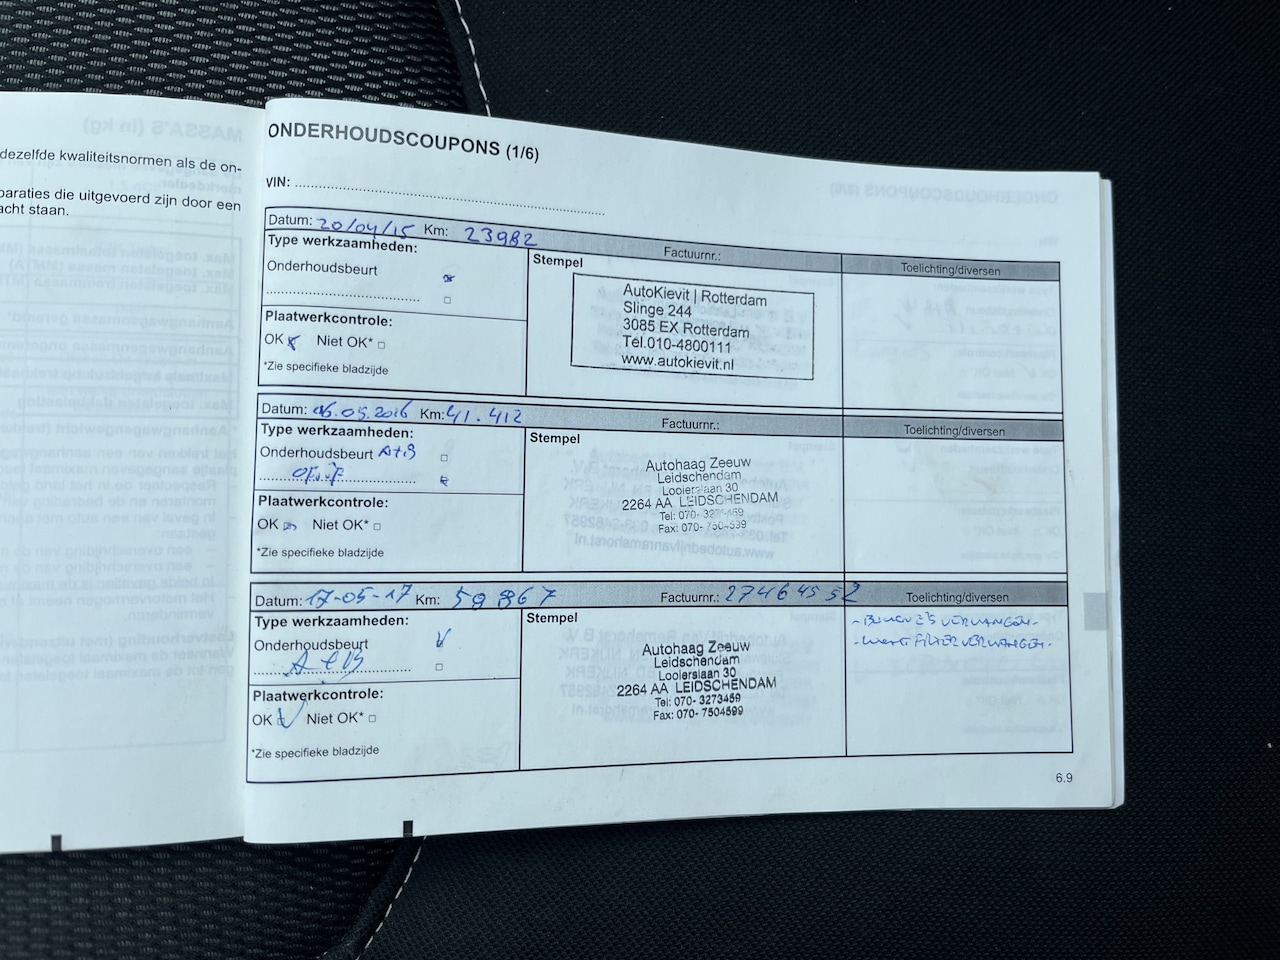 dezelfde kwaliteitsnormen als de on-
paraties die uitgevoerd zijn door een
acht staan.
ONDERHOUDSCOUPONS (1/6)
VIN: ..........
Datum: 20/04/15 Km: 23982 Factuurnr.: Toelichting/diversen
Type werkzaamheden:
Onderhoudsbeurt
Plaatwerkcontrole:
OK Niet OK*
*Zie specifieke bladzijde
Stempel
AutoKievit | Rotterdam
Slinge 244
3085 EX Rotterdam
Tel.010-4800111
www.autokievit.nl
Datum: 06.05.2016 Km: 41.412 Factuurnr.: Toelichting/diversen
Type werkzaamheden:
Onderhoudsbeurt A+B
Plaatwerkcontrole:
OK Niet OK*
*Zie specifieke bladzijde
Stempel
Autohaag Zeeuw
Leidschendam
Looierslaan 30
2264 AA LEIDSCHENDAM
Tel: 070- 3273459
Fax: 070- 7504599
Datum: 17-05-17 Km: 59867 Factuurnr.: 27464552 Toelichting/diversen
Type werkzaamheden:
Onderhoudsbeurt
A+B
Plaatwerkcontrole:
OK Niet OK*
*Zie specifieke bladzijde
Stempel
Autohaag Zeeuw
Leidschendam
Looierslaan 30
2264 AA LEIDSCHENDAM
Tel: 070- 3273459
Fax: 070- 7504599
- BOUGIES VERVANGEN-
FILTER VERVANGEN-
6.9